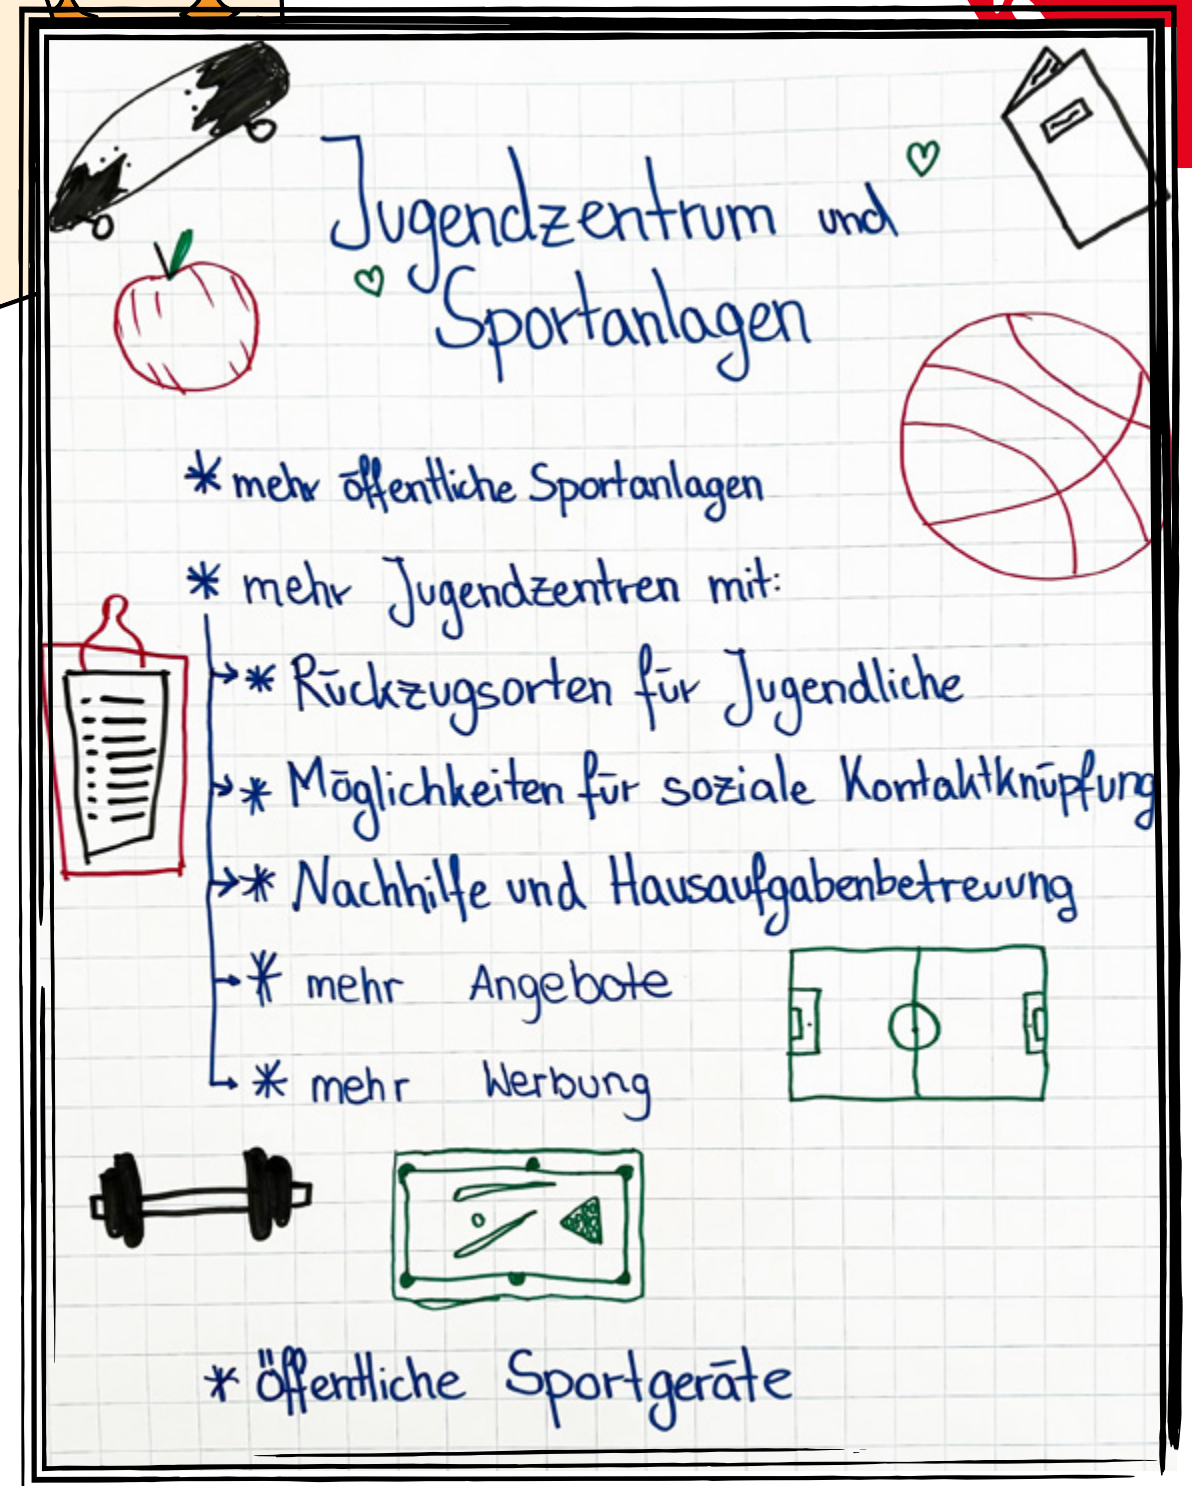 Jugendzentrum und
Sportanlagen
* mehr öffentliche Sportanlagen
* mehr Jugendzentren mit:
* Rückzugsorten für Jugendliche
* Möglichkeiten für soziale Kontaktknüpfung
* Nachhilfe und Hausaufgabenbetreuung
* mehr Angebote
* mehr Werbung
* öffentliche Sportgeräte